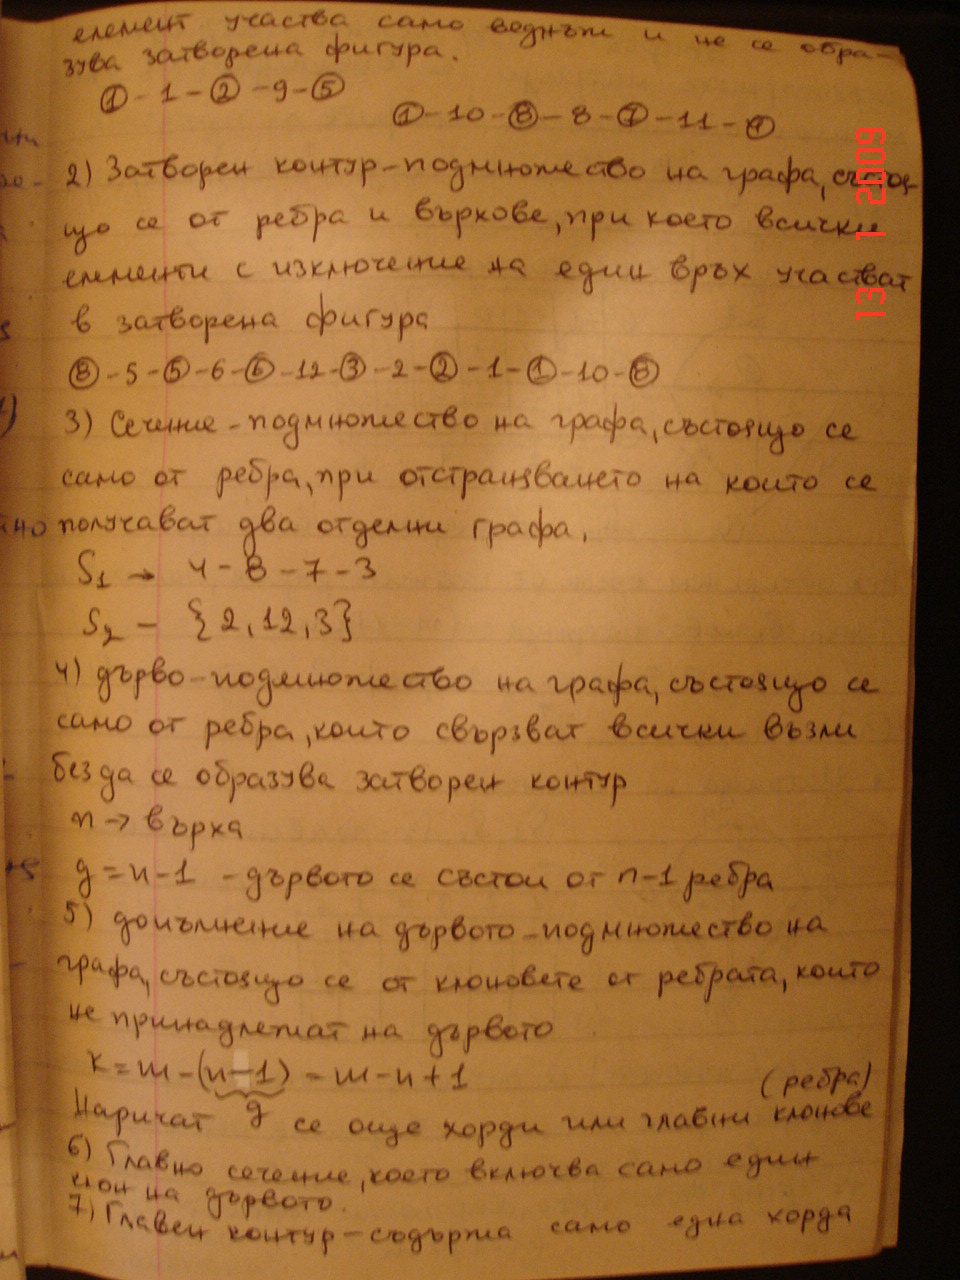 елемент участва само веднъж и не се обра-
зува затворена фигура.
① - 1 - ② - 9 - ⑤
① - 10 - ⑧ - 8 - ⑦ - 11 -
2) Затворен контур - подмножество на графа, състоя-
що се от ребра и върхове, при което всички
елементи с изключение на един връх участват
в затворена фигура
⑧ - 5 - ⑤ - 6 - ⑥ - 12 - ③ - 2 - ② - 1 - ① - 10 - ⑧
3) Сечение - подмножество на графа, състоящо се
само от ребра, при отстраняването на които се
получават два отделни графа.
S₁ → 4 - 8 - 7 - 3
S₂ - {2, 12, 3}
4) дърво - подмножество на графа, състоящо се
само от ребра, които свързват всички възли
без да се образува затворен контур
n → върха
g = n - 1 - дървото се състои от n-1 ребра
5) допълнение на дървото - подмножество на
графа, състоящо се от клоновете от ребрата, които
не принадлежат на дървото
k = m - (n - 1) = m - n + 1
g
(ребра)
Наричат се още хорди или главни клонове
6) Главно сечение, което включва само един
клон на дървото.
7) Главен контур - съдържа само една хорда
13 1 2009